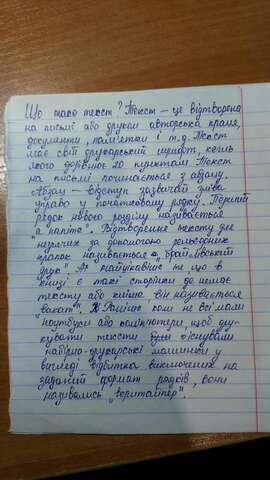 Що таке текст? Текст – це відтворена
на письмі або друком авторська праця,
документи, пам'ятки і т.д. Текст
має свій друкарський шрифт, кегль
якого дорівнює 20 пунктам. Текст
на письмі починається з абзацу.
Абзац – відступ зазвичай зліва
управо у початковому рядку. Перший
рядок нового розділу називається
"а лапіте". Відтворення тексту для
незрячих за допомогою рельєфних
крапок називається "брайлівський
друк". А найцікавіше те що в
книзі є такі сторінки де немає
тексту або кліше. Він називається
"вакат". Раніше коли не всі мали
ноутбуки або комп'ютери, щоб дру-
кувати тексти існували
набірно-друкарські машинки у
вигляді відбитка виключених на
заданий формат рядків, вони
називались "верітайпер".